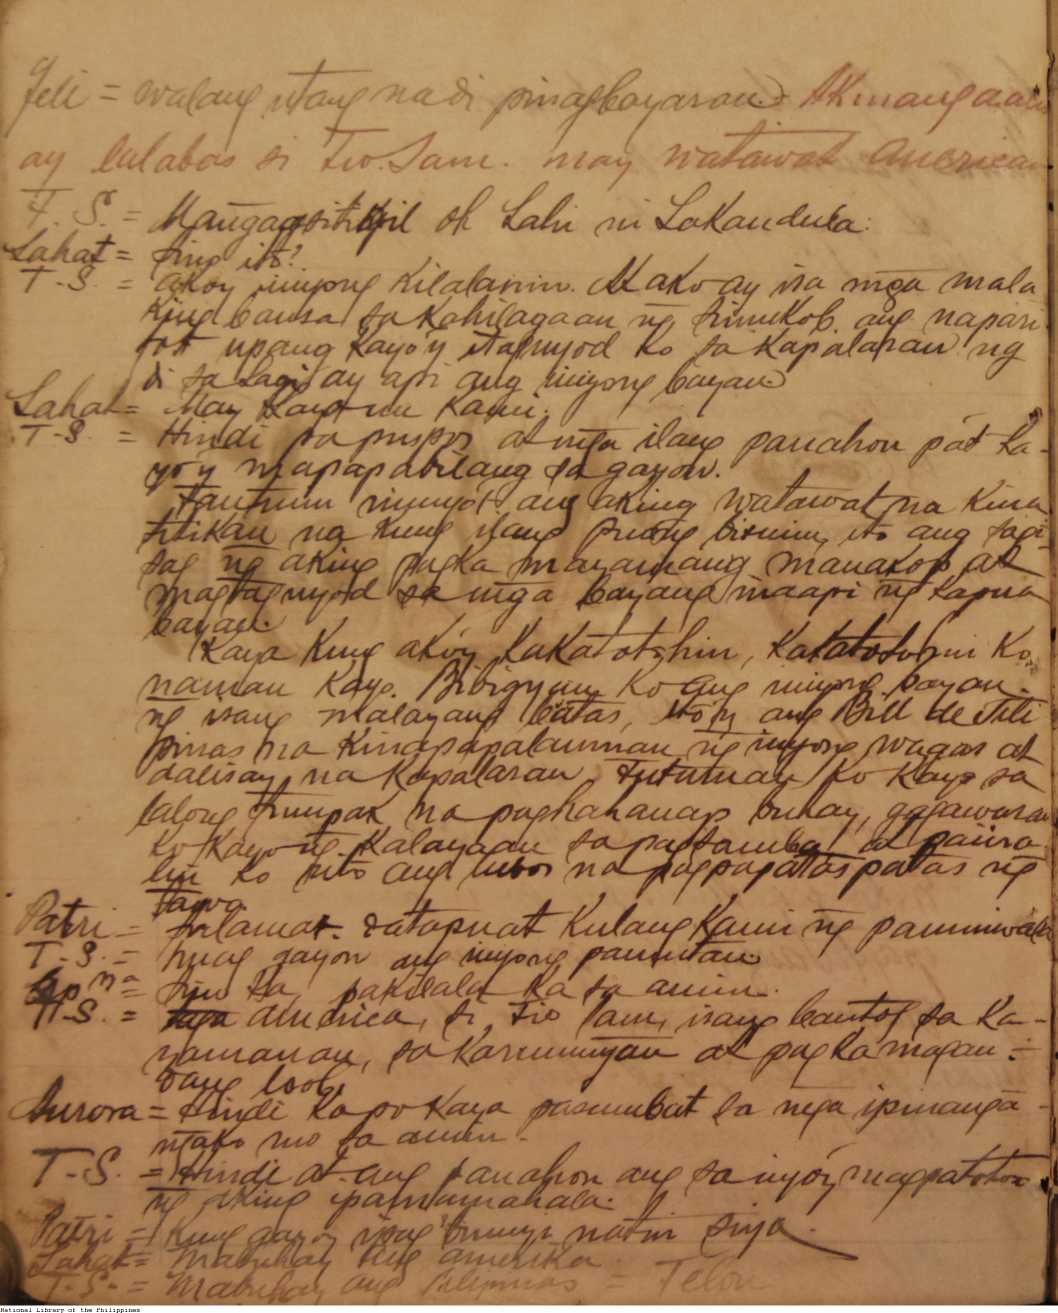 Feli = walang utang na di pinagbayaran. Akmang aalis
ay lalabas si Tio. Sam. may watawat American
T. S. = Mangagsitigil oh Lahi ni Lakandula:
Lahat = Sino ito?
T-S. = Akoy inyong kilalanin. Ako ay isa mga mala
king bansa sa kahilagaan ng sinukob. ang napari
tot upang kayo'y itaguyod ko sa kapalaran ng
di sa lagi ay api ang inyong bayan.
Lahat = May kami.
T-S. = Hindi sa puspos at mga ilang panahon pa't ka-
yo'y mapapabilang sa gayon.
Tantuin ninyo't ang aking watawat na kina
titikan ng kung ilang bituin, ito ang sagi
sag ng aking pagka mayamang manakop at
magtaguyod sa mga bayang maapi ng kapwa
bayan.
Kaya kung ako'y kakatotohin, ko
naman kayo. Bibigyang ko ang inyong bayan
ng isang malayang batas, ito'y ang Bill de Fili
pinas na kinapapalamnan ng inyong wagas at
dalisay na kapalaran, tuturuan ko kayo sa
lalong na paghahanap buhay, gagawaran
ko kayo ng kalayaan sa pagsamba, at paiira
lin ko rito ang lubos na pagpapatas patas ng
tawo.
Patri = Salamat. datapuat kulang kami ng paniniwala
T-S. = huag gayon ang inyong panuntan
= Sino ka, pakilala ka sa amin.
T-S. = America, si Tio Sam, isang bantog sa ka-
yamanan, sa karunungan at pagkamagan-
dang loob,
Aurora = Hindi ka po kaya sasumbat sa mga ipinanga-
ngako mo sa amin.
T-S. = Hindi at ang panahon ang sa inyo'y magpatotoo
ng aking ipamamahala.
Patri = Kung gayo'y ipag bunyi natin siya.
Lahat = Mabuhay ang amerika
T-S. = Mabuhay ang Filipinas = Telon
National Library of the Philippines